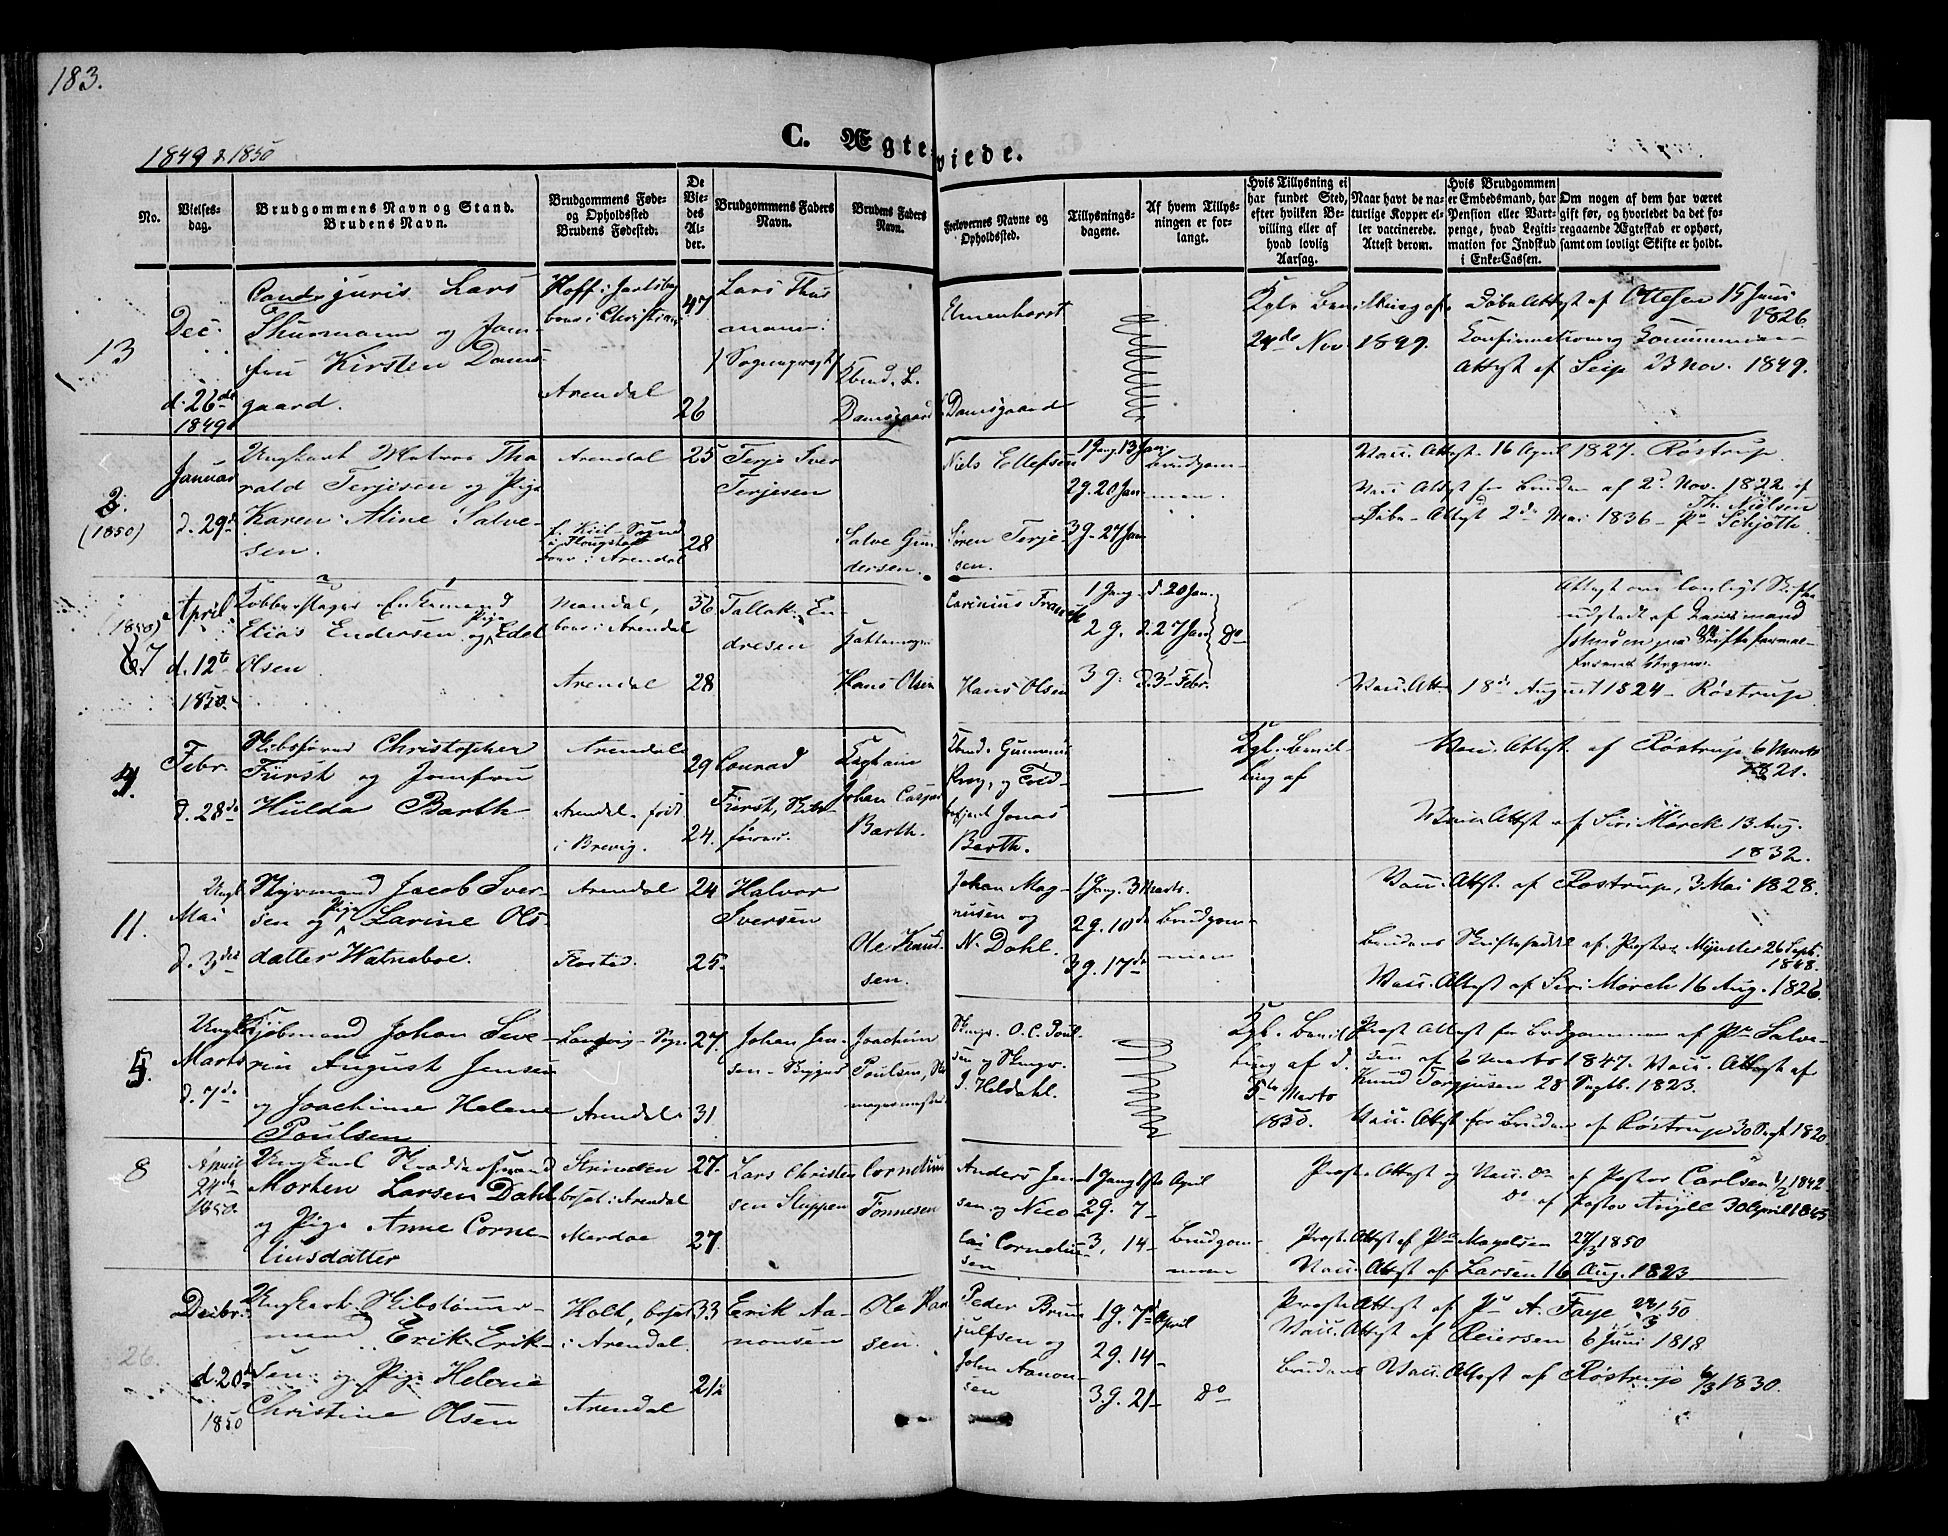 183.
C. Ægteviede.
1849 & 1850
No.
Vielses-
dag.
Brudgommens Navn og Stand.
Brudens Navn.
Brudgommens Føde-
og Opholdssted
Brudens Fødested.
De
Vie-
des
Al-
der.
Brudgommens Faders
Navn.
Brudens Faders
Navn.
Forlovernes Navne og
Opholdssted.
Tillysnings-
dagene.
Af hvem Tillys-
ningen er for-
langt.
Hvis Tillysning ei
har fundet Sted,
efter hvilken Be-
villing eller af
hvad lovlig
Aarsag.
Naar havt de na-
turlige Kopper el-
ler vaccinerede.
Attest derom.
Hvis Brudgommen
er Embedsmand, har
Pension eller Vart-
penge, hvad Legiti-
mation for Indskud
i Enke-Cassen.
Om nogen af dem har været
gift før, og hvorledet da det fo-
regaaende Ægteskab er ophørt,
samt om lovligt Skifte er holdt.
13
Dec.
d. 26de
1849
Cand. juris Lars
Thurmann og Jom-
fru Kirsten Dams-
gaard.
Hoff i Jarlsberg
boer i Christiania
Arendal
47
26
Lars Thur
mann.
/Sogneprest/
Ebend. L.
Damsgaard
Elmenhorst
Damsgaard
Kgl. Bevilling af
24de Nov. 1849.
Døbe Attest af Ottesen 15 Juni
1826.
Confirmations og Communions-
Attest af Seip 23 Nov. 1849.
2.
(1850)
Januar
d. 29d
Ungkarl Matros Tha
rald Terjesen og Pige
Karen Aline Salve-
sen.
Arendal
boer i Arendal
25
28
Terje Iver
Terjesen
Salve Gun
dersen.
Niels Ellefsen
Søren Terje-
sen.
1 Gang 13 Jan.
2 g. 20 Jan
3 g. 27 Jan
Brudgom-
men.
Vacc. Attest 16 April 1827. Røstrup.
Vacc. Attest for Bruden af 2. Nov. 1822 af
Th. Nielsen
Døbe-Attest 2de Mai 1836 - Pr Schjøtt.
(1850)
67
April
d. 12te
1850.
Kobberslager Enkemand
Elias Endersen og Pige Edel
Olsen
Mandal,
boer i Arendal
Arendal
36
28
Tallak En-
dresen
Hans Olsen
Carinius Franck
Hans Olsen
1 Gang d. 20 Jan.
2 g. d. 27 Jan
3 g. d. 3d Febr.
Do
Attest om lovligt Skifte
udstedt af
Vacc. Att. 18de August 1824 - Røstrup
4.
Febr.
d. 28de
Skibsfører Christopher
Fürst og Jomfru
Hulda Barth
Arendal
Arendal. født
i Brevig.
29
24.
Conrad
Fürst, Skibs-
fører.
Kaptain
Johan Casper
Barth.
Jonas
Barth.
Kgl. Bevil-
ling af
Vacc. Attest af Røstrup 6 Marts
1821.
Vacc. Attest af Siri Mörck 13 Aug.
1832.
11.
Ungk.
Mai
d. 3die
Styrmand Jacob Iver-
sen og Pige Larine Ols-
datter Watneboe.
Arendal
Flosted.
24
25.
Halvor
Iversen
Ole Knud-
sen.
Johan Mag-
nusen og
N. Dahl.
1 Gang 3 Marts.
2 g. 10de
3 g. 17de
Brudgom-
men
Vacc. Attest. af Røstrup, 3 Mai 1828.
Brudens Skifteseddel af Pastor Mynster 26 Sept.
1848.
Vacc. Attest af Siri Mörch 16 Aug. 1826.
5.
Ungk.
Marts
d. 7de
Kjøbmand Johan Seve-
rin August Jensen
og Joachime Helene
Poulsen
Landvig-Sogn
Arendal.
27.
31
Johan Jen-
sen
Joachim
Poulsen,
O. C. Poul-
sen og
J. Heldahl.
Kgl. Bevil-
ling af d.
5te Marts
1850.
Prest Attest for Brudgommen af Pr Salve-
sen af 6 Marts 1847. Vacc. Attest af
Knud Torgjusen 28 Septb. 1823.
Vacc. Attest for Bruden af Røstrup 30 Sept 1820
8
April
24de
1850.
Ungkarl Skræddersvend
Morten Larsen Dahl
og Pige Anne Corne-
liusdatter
Strinden
bosat i Arendal
Merdøe
27.
27.
Lars Christen
sen Stuppen
Cornelius
Tønnesen
Anders Jen
sen og Nico
lai Cornelius-
sen
1 Gang 1ste April
2 g. 7-
3, 14-
Brudgom-
men
Præste Attest og Vacc. do af Pastor Carlsen 1/2 1842
Do af Pastor Angell 30 April 1845
Prest. Attest af Pr Magelsen 27/3 1850
Vacc. Attest af Larsen 16 Aug. 1823
26.
Decbr.
d. 20de
1850
Ungkarl. Skibstømmer-
mand Erik Erik-
sen og Pige Helene
Christine Olsen
Holt, bosat
i Arendal.
Arendal
33
21½
Erik Aa-
nonsen
Ole Han
sen.
Peder Bryn
julfsen og
John Aanon-
sen
1 g. 7de April
2 g. 14-
3. g. 21-
Do
Præste Attest af Pr A. Faye 24/3 50
Vacc. Attest af Reiersen 6 Juni 1818
Brudens Vacc. Attest af Røstrup 6/3 1830.